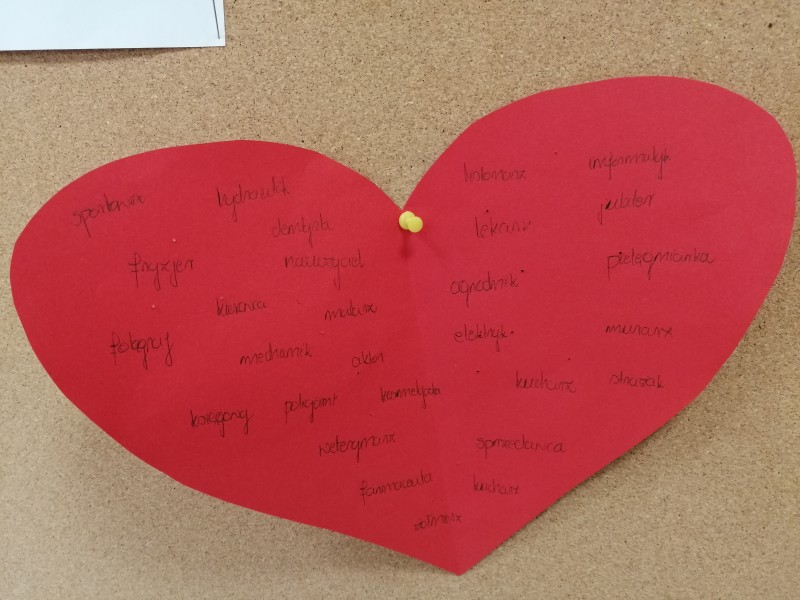 sportowiec
hydraulik
dentysta
fryzjer
nauczyciel
kierowca
malarz
fotograf
mechanik
aktor
księgowy
policjant
kosmetyczka
weterynarz
farmaceuta
żołnierz
listonosz
informatyk
lekarz
jubiler
ogrodnik
pielęgniarka
elektryk
murarz
kucharz
strażak
sprzedawca
kucharz